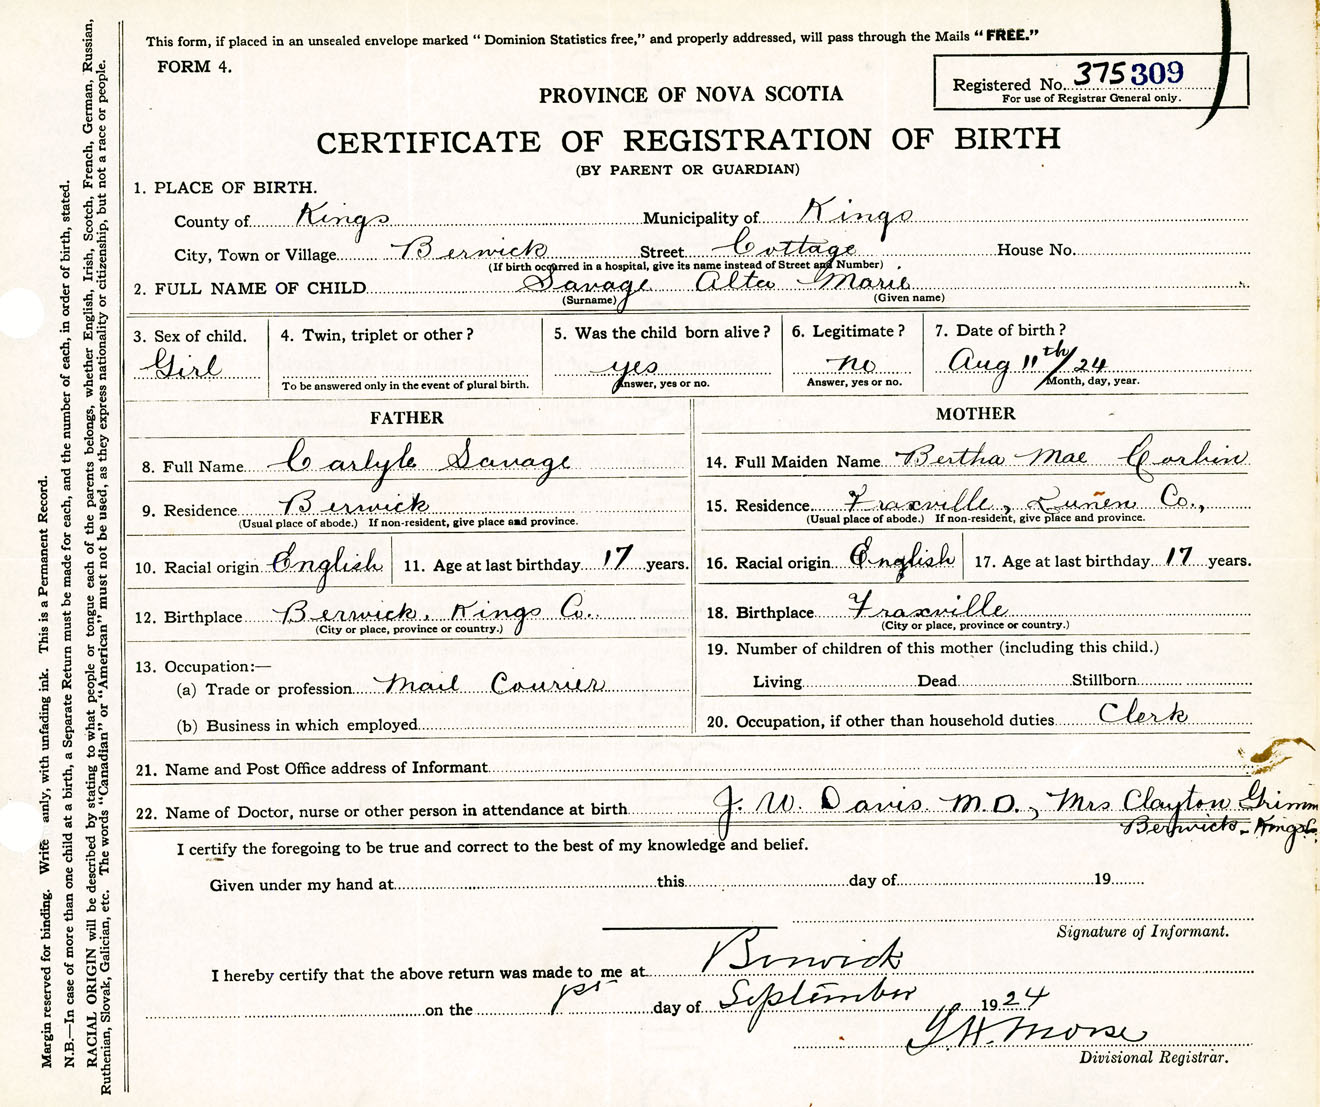 This form, if placed in an unsealed envelope marked "Dominion Statistics free," and properly addressed, will pass through the Mails "FREE."
FORM 4.
Registered No. 375309
For use of Registrar General only.
PROVINCE OF NOVA SCOTIA
CERTIFICATE OF REGISTRATION OF BIRTH
(BY PARENT OR GUARDIAN)
1. PLACE OF BIRTH.
County of Kings Municipality of Kings
City, Town or Village Berwick Street Cottage House No.
(If birth occurred in a hospital, give its name instead of Street and Number)
2. FULL NAME OF CHILD Savage Alta Marie
(Surname) (Given name)
3. Sex of child. Girl
4. Twin, triplet or other?
To be answered only in the event of plural birth.
5. Was the child born alive? yes
Answer, yes or no.
6. Legitimate? no
Answer, yes or no.
7. Date of birth? Aug 11th/24
Month, day, year.
FATHER
8. Full Name Carlyle Savage
9. Residence Berwick
(Usual place of abode.) If non-resident, give place and province.
10. Racial origin English 11. Age at last birthday 17 years.
12. Birthplace Berwick, Kings Co.
(City or place, province or country.)
13. Occupation:—
(a) Trade or profession Mail Courier
(b) Business in which employed
MOTHER
14. Full Maiden Name Bertha Mae Corbin
15. Residence Fraxville, Lunen Co.,
(Usual place of abode.) If non-resident, give place and province.
16. Racial origin English 17. Age at last birthday 17 years.
18. Birthplace Fraxville
(City or place, province or country.)
19. Number of children of this mother (including this child.)
Living Dead Stillborn
20. Occupation, if other than household duties Clerk
21. Name and Post Office address of Informant
22. Name of Doctor, nurse or other person in attendance at birth J. W. Davis M.D., Mrs Clayton Grimm
Berwick - Kings Co.
I certify the foregoing to be true and correct to the best of my knowledge and belief.
Given under my hand at this day of 19
Signature of Informant.
I hereby certify that the above return was made to me at Berwick
on the 1st day of September 1924
G. H. Morse
Divisional Registrar.
Margin reserved for binding. Write ainly, with unfading ink. This is a Permanent Record.
N.B.—In case of more than one child at a birth, a Separate Return must be made for each, and the number of each, in order of birth, stated.
RACIAL ORIGIN will be described by stating to what people or tongue each of the parents belongs, whether English, Irish, Scotch, French, German, Russian,
Ruthenian, Slovak, Galician, etc. The words "Canadian" or "American" must not be used, as they express nationality or citizenship, but not a race or people.